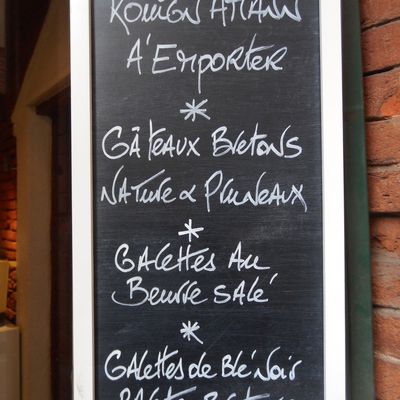 Kouign Amann
A'Emporter
*
Gâteaux Bretons
Nature & Pruneaux
*
Galettes Au
Beurre Salé
*
Galettes de Blé Noir